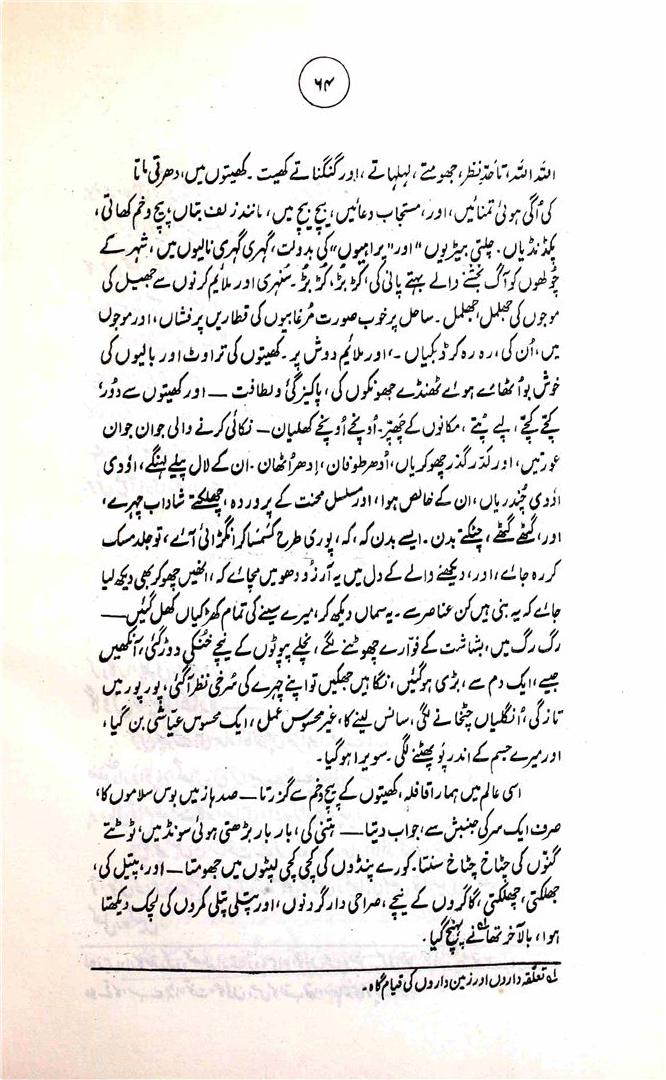 ۶۴
اللہ اللہ، تا حدِّ نظر، جھومتے، لہلہاتے، اور گنگناتے کھیت۔ کھیتوں میں، دھرتی ماتا
کی اُگی ہوئی تمنائیں، اور، مستجاب دعائیں، بیچ بیچ میں، مانند زلفِ بتاں، پیچ و خم کھاتی،
پگڈنڈیاں۔ چلتی بیڑیوں "اور" پراہیوں" کی بدولت، گہری گہری نالیوں میں، شہر کے
چولھوں کو آگ بخشنے والے بہتے پانی کی، کڑبڑ، کڑبڑ۔ سُنہری اور ملائم کرنوں سے جھیل کی
موجوں کی جھلمل، جھلمل۔ ساحل پر خوب صورت مُرغابیوں کی قطاریں پرفشاں، اور موجوں
میں، اُن کی، رہ رہ کر ڈبکیاں ۔، اور ملائیم دوش پر۔ کھیتوں کی تراوٹ اور بالیوں کی
خوش بو اُٹھائے ہوئے ٹھنڈے جھونکوں کی، پاکیزگی و لطافت — اور کھیتوں سے دُور،
کچے کچے، لپے پُتے، مکانوں کے چھپّر۔ اُونچے اُونچے کھلیان — نکائی کرنے والی جوان جوان
عورتیں، اور گدّر گدّر چھوکریاں، اُدھر طوفان، اِدھر اُٹھان۔ ان کے لال پیلے لہنگے، اودی
اودی چُندریاں، ان کے خالص ہوا، اور مسلسل محنت کے پروردہ، چھلکتے شاداب چہرے،
اور، گٹھے گٹھے، چٹکتے بدن۔ ایسے بدن کہ، کہ، پوری طرح کسمسا کر انگڑائی آئے، تو جلد مسک
کر رہ جائے، اور، دیکھنے والے کے دل میں یہ آرزو دھومیں مچائے کہ، انھیں چھو کر بھی دیکھ لیا
جائے کہ یہ بنی ہیں کن عناصر سے۔ یہ سماں دیکھ کر، میرے سینے کی تمام کھڑکیاں کھل گئیں —
رگ رگ میں، بشاشت کے فوّارے چھوٹنے لگے، نچلے پپوٹوں کے نیچے خنکی دوڑ گئی، آنکھیں
جیسے، ایک دم سے، بڑی ہوگئیں، نگاہیں جھکیں تو اپنے چہرے کی سُرخی نظر آگئی، پور پور میں
تازگی، اُنگلیاں چٹخانے لگی، سانس لینے کا، غیر محسوس عمل، ایک محسوس عیّاشی بن گیا،
اور میرے جسم کے اندر پو پھٹنے لگی۔ سویرا ہوگیا۔
اسی عالم میں ہمارا قافلہ، کھیتوں کے پیچ و خم سے گزرتا — صدہا زمیں بوس سلاموں کا،
صرف ایک سر کی جنبش سے، جواب دیتا — ہتنی کی، بار بار بڑھتی ہوئی سونڈ میں، ٹوٹتے
گنّوں کی چٹاخ چٹاخ سنتا۔ کورے پنڈوں کی کچی کچی لپٹوں میں جھومتا — اور، پیتل کی،
جھلکتی، چھلکتی، گاگروں کے نیچے، صراحی دار گردنوں، اور پتلی پتلی کمروں کی لچک دیکھتا
ہوا، بالآخر تھانے لہ پہنچ گیا۔
لہ تعلّقہ داروں اور زمین داروں کی قیام گاہ۔